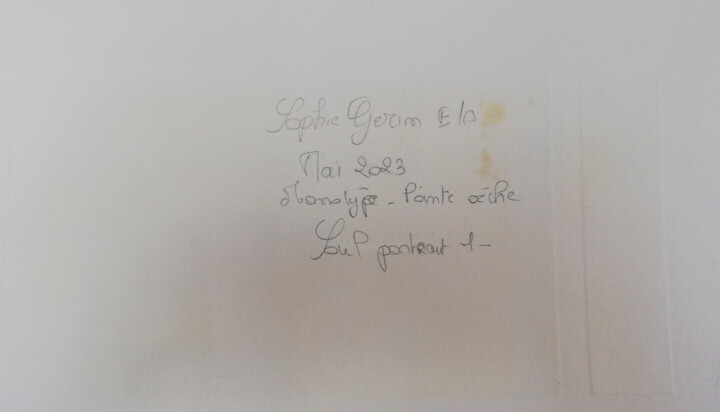 Sophie Gerin E/A
Mai 2023
Monotype - Pointe sèche
portrait 1-